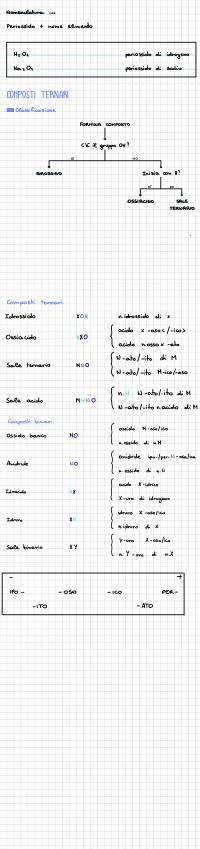 Nomenclatura ...
Periossido + nome elemento
H₂O₂ periossido di idrogeno
Na₂O₂ periossido di sodio
COMPOSTI TERNARI
Classificazione
FORMULA COMPOSTO
C'è il gruppo OH?
sì no
IDROSSIDO Inizia con H?
sì no
OSSIACIDO SALE TERNARIO
Composti ternari
Idrossido XOH n.idrossido di X
Ossiacido HXO acido X -oso (/-ico)
acido n.osso X -ato
Sale ternario MNO N-ato/-ito di M
N-ato/-ito M-ico/-oso
Sale acido MHNO n.H N-ato/-ito di M
N-ato/-ito n.acido di M
Composti binari
Ossido basico MO ossido M-oso/ico
n.ossido di n.M
Anidride NO anidride ipo-/per- N-oso/ica
n.ossido di n.N
Idracido HX acido X-idrico
X-uro di idrogeno
Idruro XH idruro X-oso/ico
n.idruro di X
Sale binario XY Y-uro X-oso/ico
n.Y-uro di n.X
- →
IPO - -OSO -ICO PER -
-ITO -ATO